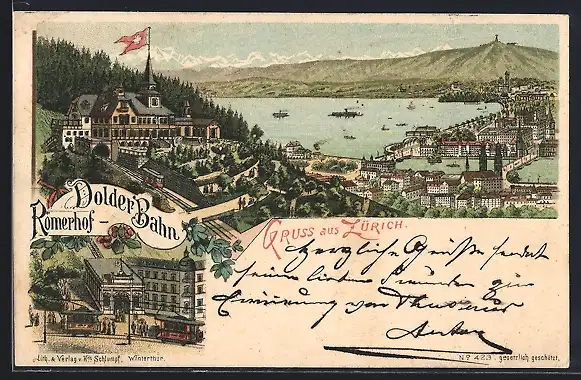 Dolder Bahn
Römerhof -
Gruss aus Zürich.
Herzliche Grüsse sendet
seinen lieben Freunden als
Erinnerung von
Anton
Lith. & Verlag v. Hch Schlumpf, Winterthur.
No 423. gesetzlich geschützt.